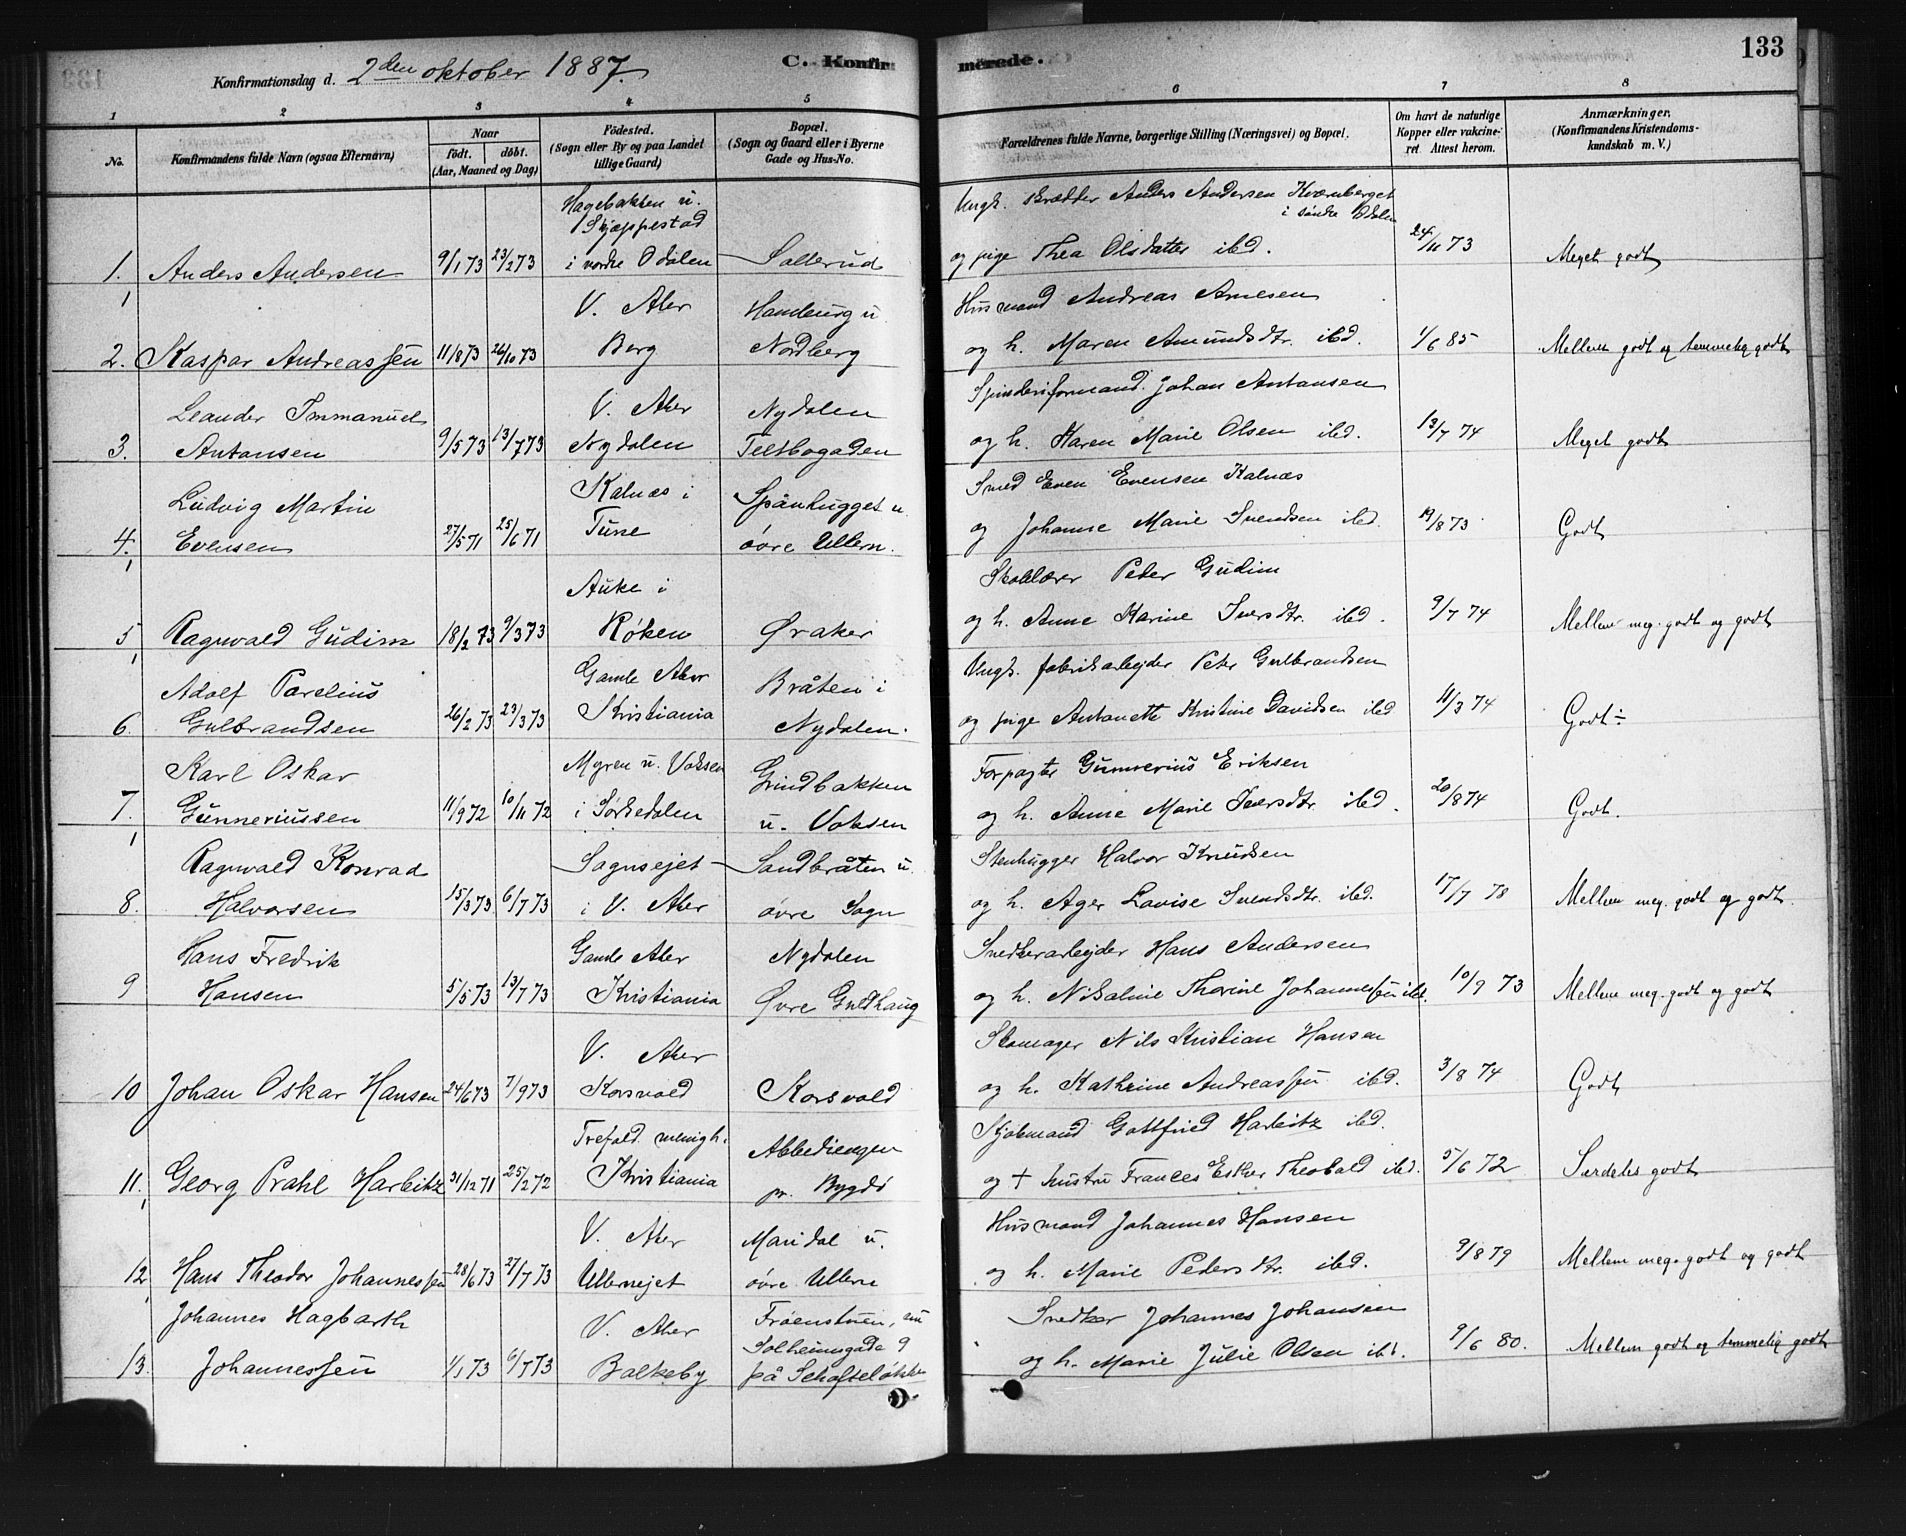 133
Konfirmationsdag d. 2den oktober 1887.
C. Konfirmerede.
1 2 3 4 5 6 7 8
No.
Konfirmandens fulde Navn (ogsaa Efternavn)
Naar
födt. döbt.
(Aar, Maaned og Dag)
Födested.
(Sogn eller By og paa Landet
tillige Gaard)
Bopæl.
(Sogn og Gaard eller i Byerne
Gade og Hus-No.
Forældrenes fulde Navne, borgerlige Stilling (Næringsvei) og Bopæl.
Om havt de naturlige
Kopper eller vakcine-
ret. Attest herom.
Anmærkninger,
(Konfirmandens Kristendoms-
kundskab m. V.)
Hagebakken u.
Skjæppestad
Ungk. Anders Andersen Kværnberget
i söndre Odalen
1. Anders Andersen 9/1 73 23/2 73 i nordre Odalen Sollerud og pige Thea Olsdatter ibd. 24/11 73 Meget godt
V. Aker Hamburg u. Husmand Andreas Arnesen
2. Kaspar Andreassen 11/8 73 26/10 73 Berg Nordberg og h. Maren Amundsdtr. ibd. 1/6 85 Mellem godt og temmelig godt
Leander Immanuel V. Aker Nydalen Spinderiformand Johan Antonsen
3. Antonsen 9/5 73 13/7 73 Nydalen Teltbogaden og h. Karen Marie Olsen ibd. 13/7 74 Meget godt
Ludvig Martin Kalnæs i Spånhugget u. Smed Even Evensen Kalnæs
4. Evensen 27/5 71 25/6 71 Tune övre Ullern. og Johanne Marie Svendsen ibd. 19/8 73 Godt
Auke i Skolelærer Peder Gudim
5 Ragnvald Gudim 18/2 73 9/3 73 Röken Øraker og h. Anne Karine Iversdtr. ibd. 9/7 74 Mellem meg. godt og godt
Adolf Parelius Gamle Aker Bråten i Ungk. fabrikarbejder Peter Gulbrandsen
6. Gulbrandsen 26/2 73 23/3 73 Kristiania Nydalen. og pige Antonette Kristine Davidsen ibd 11/3 74 Godt ÷
Karl Oskar Myren u. Voksen Grindbakken Forpagter Gunnerius Eriksen
7. Gunneriussen 11/9 72 10/11 72 i Sörkedalen u. Voksen og h. Anne Marie Iversdtr. ibd. 20/8 74 Godt.
Ragnvald Konrad Sognsejet Sandbråten u. Stenhugger Halvor Knudsen
8. Halvorsen 15/3 73 6/7 73 i V. Aker övre Sogn og h. Ager Lovise Svendsdtr. ibd. 17/7 78 Mellem meg. godt og godt.
Hans Fredrik Gamle Aker Nydalen Snedkerarbejder Hans Andersen
9 Hansen 5/5 73 13/7 73 Kristiania Øvre Guldhaug og h. Nikoline Thorine Johannessen ibd. 10/9 73 Mellem meg. godt og godt
V. Aker Skomager Nils Kristian Hansen
10 Johan Oskar Hansen 24/6 73 7/9 73 Korsvold Korsvold og h. Kathrine Andreassen ibd. 3/8 74 Godt
Trefold. menigh. Abbediengen Gottfried Harbitz ibd.
11. Georg Prahl Harbitz 31/12 71 25/2 72 Kristiania pr. Bygdö og + hustru Frances Esther Theobald ibd. 5/6 72 Særdeles godt
V. Aker Maridal u. Husmand Johannes Hansen
12 Hans Theodor Johannessen 28/6 73 27/7 73 Ullernejet övre Ullern og h. Marie Pedersdtr. ibd. 9/8 79 Mellem meg. godt og godt
Johannes Hagbarth V. Aker Fröenstuen, nu Snedker Johannes Johansen
Solheimsgade 9
13. Johannessen 1/1 73 6/7 73 Bolkeby på Schafteløkken og h. Marie Julie Olsen ibd. 9/6 80. Mellem godt og temmelig godt